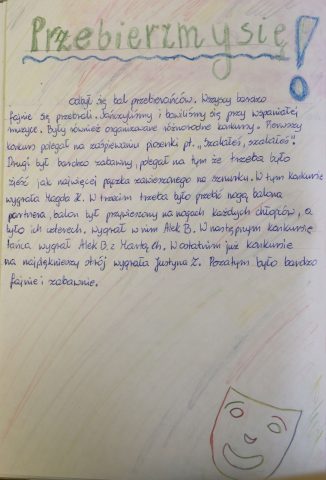 Przebierzmy się!
odbył się bal przebierańców. Wszyscy bardzo
fajnie się przebrali. Tańczyliśmy i bawiliśmy się przy wspaniałej
muzyce. Były również organizowane różnorodne konkursy. Pierwszy
konkurs polegał na zaśpiewaniu piosenki pt. „Szalałeś, szalałeś".
Drugi był bardzo zabawny, polegał na tym że trzeba było
zjeść jak najwięcej pączka zawieszonego na sznurku. W tym konkursie
wygrała Magda K. W trzecim trzeba było przebić nogą balona
partnera, balon był przywiązany na nogach każdych chłopców, a
było ich czterech. Wygrał w nim Alek B. W następnym konkursie
tańca wygrał Alek B. z Martą Ch. W ostatnim już konkursie
na najpiękniejszy strój wygrała Justyna Z. Pozatym było bardzo
fajnie i zabawnie.